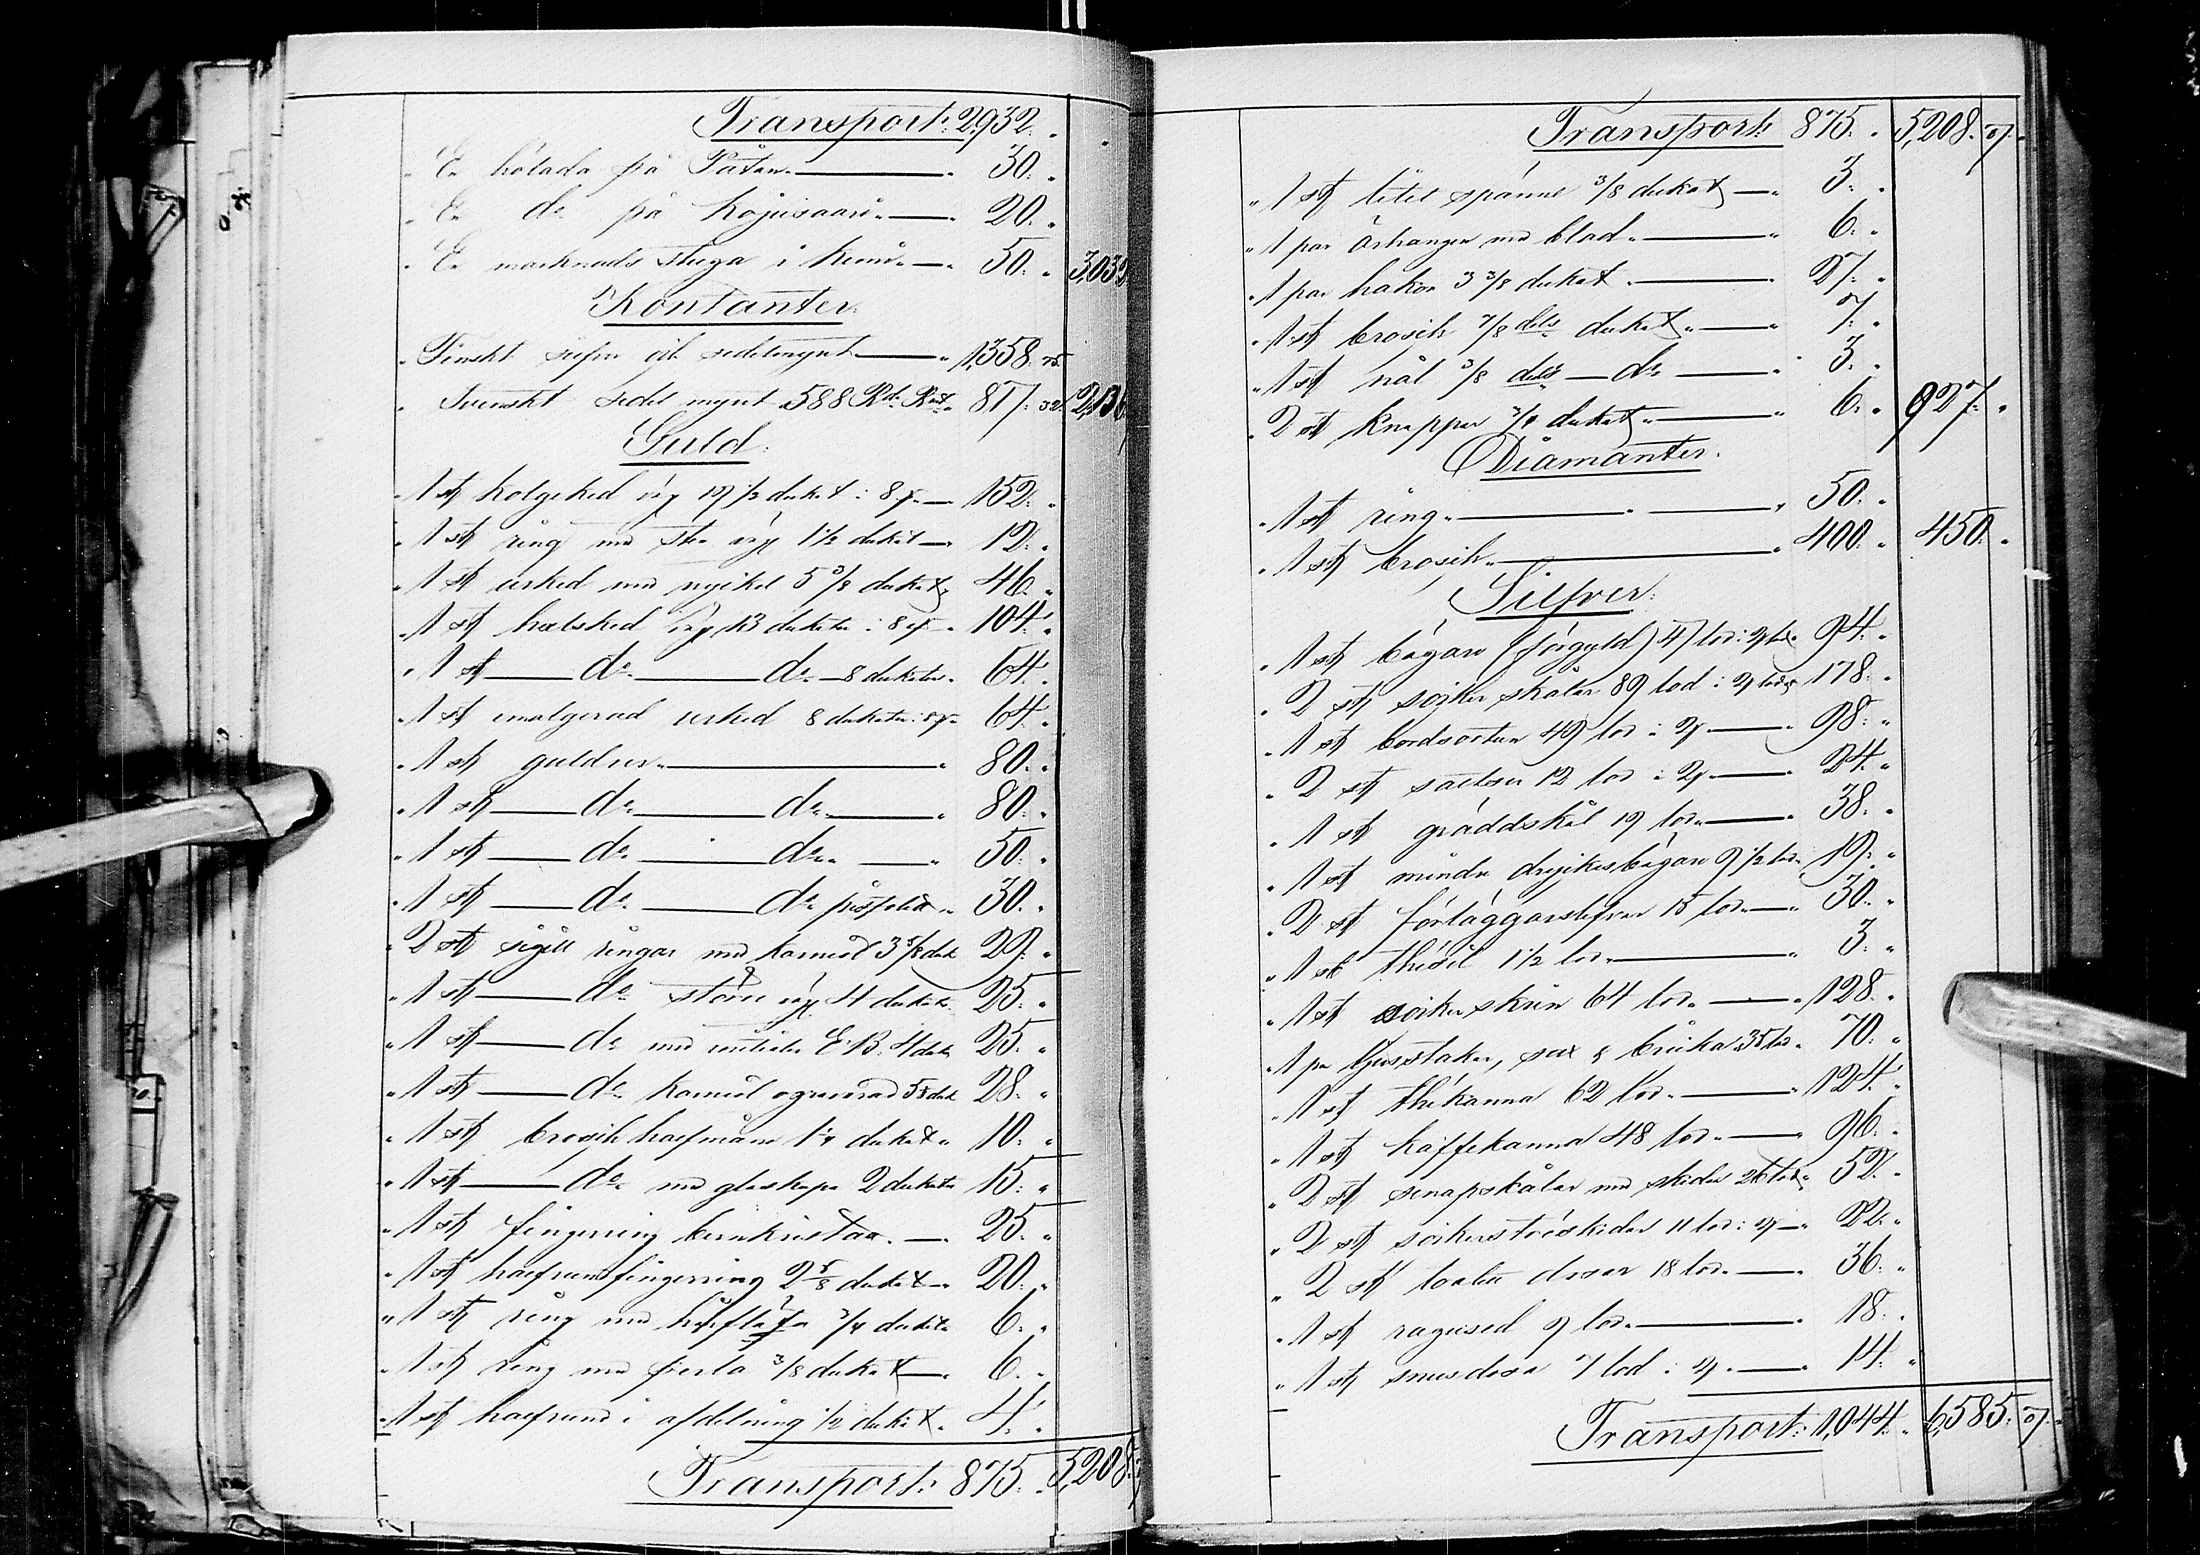 Transport: 2,932. "
" En hölada på Påtan. — " 30. "
" En do på Kojusaari. — " 20. "
" En marknads stuga i Kemi. — " 50. " 3,032
Kontanter.
" Finskt silfver och sedelmynt — " 1,358. 75.
" Svenskt sedel mynt 588 Rdr Rmt. " 817. 32. 2,176
Guld.
" 1 st kolgeked väg 19 1/2 dukat : 8 — 152. "
" 1 st ring med sten väg 1 1/2 dukat — " 12. "
" 1 st urked med nyckel 5 3/8 dukat " 46. "
" 1 st halsked väg 13 dukater : 8 — " 104. "
" 1 st — do — do — 8 dukater " 64. "
" 1 st emalgerad urked 8 dukater : 8 " 64. "
" 1 st guldur. — " 80. "
" 1 st — do — do — " 80. "
" 1 st — do — do — " 50. "
" 1 st — do — do " 30. "
" 2 st sigill ringar med karniol 3 5/8 duk 29. "
" 1 st — do större väg 4 dukater 25. "
" 1 st — do med initialer E.B. 4 duk 25. "
" 1 st — do karniol ograverad duk 28. "
" 1 st brosch halfmåne 1 1/4 dukat " 10. "
" 1 st — do med glaskupa 2 dukater 15. "
" 1 st fingerring — " 25. "
" 1 st halfrund fingerring 2 5/8 dukat " 20. "
" 1 st ring med 3/4 dukat " 6. "
" 1 st ring med perla 3/8 dukat — " 6. "
" 1 st halfrund i afdelning 1/2 dukat " 4. "
Transport: 875. " 5,208.
Transport: 875. " 5,208. 07.
" 1 st litet spänne 3/8 dukat — " 3. "
" 1 par örhängen med blad. — " 6. "
" 1 par hakor 3 3/8 dukat. — " 27. "
" 1 st brosch 7/8 dels dukat. — " 7. "
" 1 st nål 3/8 dels — do — " 3. "
" 2 st knappar 3/4 dukat — " 6. " 927. "
Diamanter.
" 1 st ring. — " 50. "
" 1 st brosch. — " 400. " 450. "
Silfver.
" 1 st bägare (förgyld) 47 lod : 2 lod " 94. "
" 2 st socker skålar 89 lod : 2 lod 178. "
" 1 st bordsurtan 49 lod : 2 — " 98. "
" 2 st saltser 12 lod : 2 — " 24. "
" 1 st gräddskål 19 lod. — " 38. "
" 1 st mindre dryckesbägare 9 1/2 lod 19. "
" 2 st förläggarslefvar 15 lod. — " 30. "
" 1 st thésil 1 1/2 lod. — " 3. "
" 1 st sockerskrin 64 lod. — " 128. "
" 1 pr ljusstakar, sax & bricka 35 lod " 70. "
" 1 st thékanna 62 lod. — " 124. "
" 1 st kaffekanna 48 lod. — " 96. "
" 2 st senapskålar med skedar 26 lod " 52. "
" 2 st sockerströskedar 11 lod : 2 — " 22. "
" 2 st toalett dosor 18 lod. — " 36. "
" 1 st ragusked 9 lod. — " 18. "
" 1 st snusdosa 7 lod : 2 — " 14. "
Transport: 1,044. " 6,585. 07.